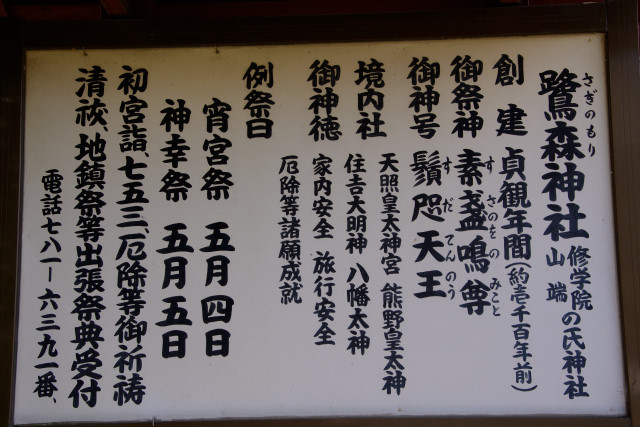 さぎのもり
鷺森神社 修学院 山端 の氏神社
創建 貞観年間(約壱千百年前)
御祭神 素盞鳴尊
すさのをのみこと
御神号 鬚咫天王
すだてんのう
境内社 天照皇太神宮 熊野皇太神
住吉大明神 八幡太神
御神徳 家内安全 旅行安全
厄除等諸願成就
例祭日
宵宮祭 五月四日
神幸祭 五月五日
初宮詣、七五三、厄除等御祈祷
清祓、地鎮祭等出張祭典受付
電話七八一ー六三九一番、